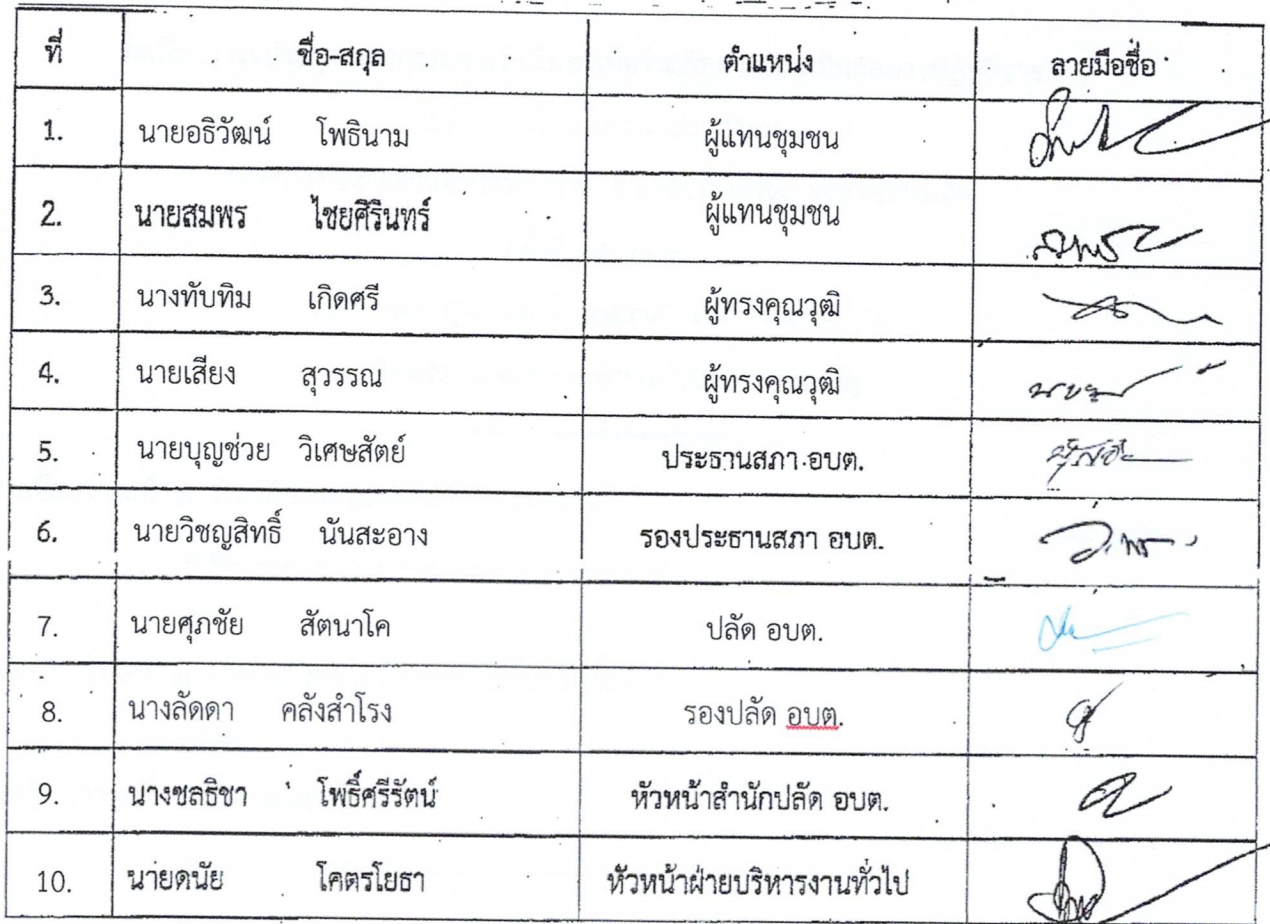 ที่ ชื่อ-สกุล ตำแหน่ง ลายมือชื่อ
1. นายอธิวัฒน์ โพธินาม ผู้แทนชุมชน
2. นายสมพร ไชยศิรินทร์ ผู้แทนชุมชน
3. นางทับทิม เกิดศรี ผู้ทรงคุณวุฒิ
4. นายเสียง สุวรรณ ผู้ทรงคุณวุฒิ
5. นายบุญช่วย วิเศษสัตย์ ประธานสภา อบต.
6. นายวิชญสิทธิ์ นันสะอาง รองประธานสภา อบต.
7. นายศุภชัย สัตนาโค ปลัด อบต.
8. นางลัดดา คลังสำโรง รองปลัด อบต.
9. นางชลธิชา โพธิ์ศรีรัตน์ หัวหน้าสำนักปลัด อบต.
10. นายดนัย โคตรโยธา หัวหน้าฝ่ายบริหารงานทั่วไป